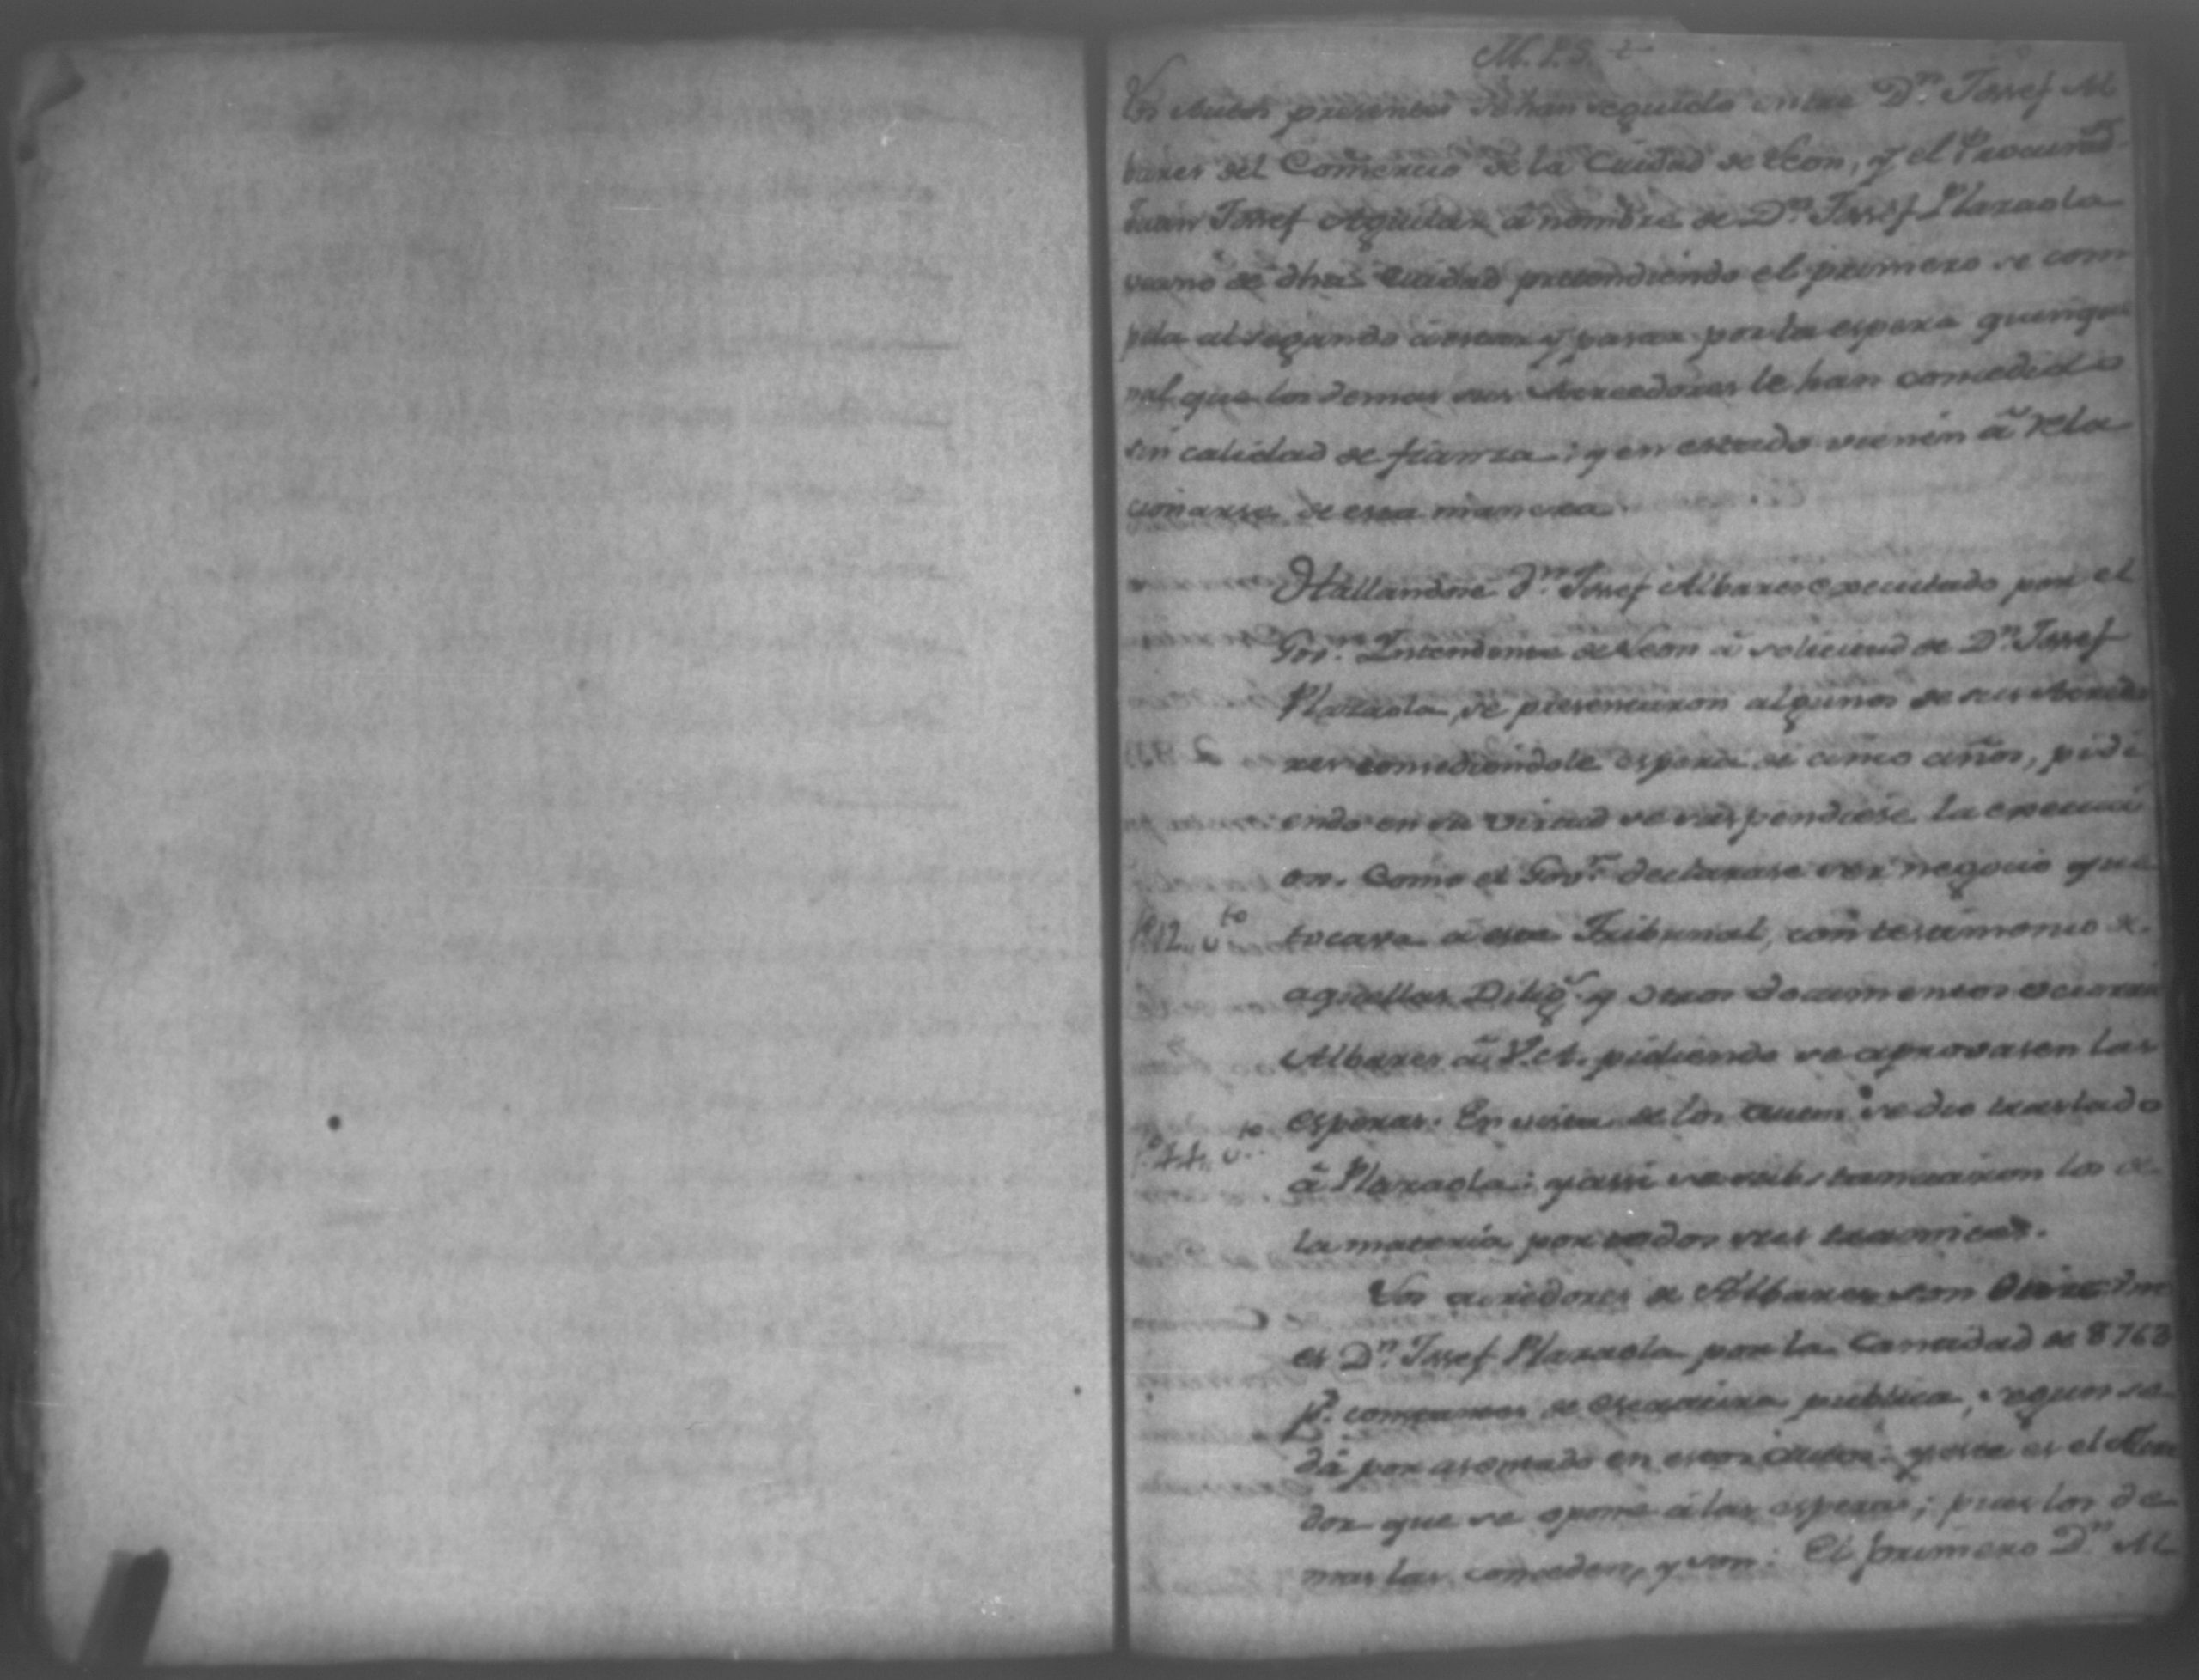 M. P. S.
Los Autos presentes se han seguido entre Dn. Josef Al
bares del Comercio de la Ciudad de Leon, y el Procurad
Juan Josef Aguilar â nombre de Dn. Josef Plazaola
vecino de dha Ciudad pretendiendo el primero se com
pela al segundo â estar y pasar por la espera quinque
nal que los demas sus Acreedores le han concedido
sin calidad de fianza: y en estado vienen â Rela
cionarse de esta manera.
Hallandose Dn. Josef Albares executado por el
Govr. Intendente de Leon â solicitud de Dn. Josef
Plazaola, se presentaron algunos de sus Acreedo
res concediendole espera de cinco años, pidi
endo en su virtud se suspendiese la execuci
on. Como el Govr. declarase ser negocio que
fs. 12. vto tocava â este Tribunal, con testimonio de
aquellas Dilig.s y otros documentos ocurrio
Albares â V.A. pidiendo se aprovasen las
esperas. En vista de los Autos se dio traslado
fo. 44. vto
â Plazaola: y assi se substanciaron los de
la materia por todos sus tramites.
Los acredores de Albares son
es Dn. Josef Plazaola por la Cantidad de 8768
ps. constantes de escritura publica, segun se
dâ por asentado en estos Autos: y este es el Acre
dor que se opone â las esperas; pues los de
mas las conceden, y son: El primero Dn. Al